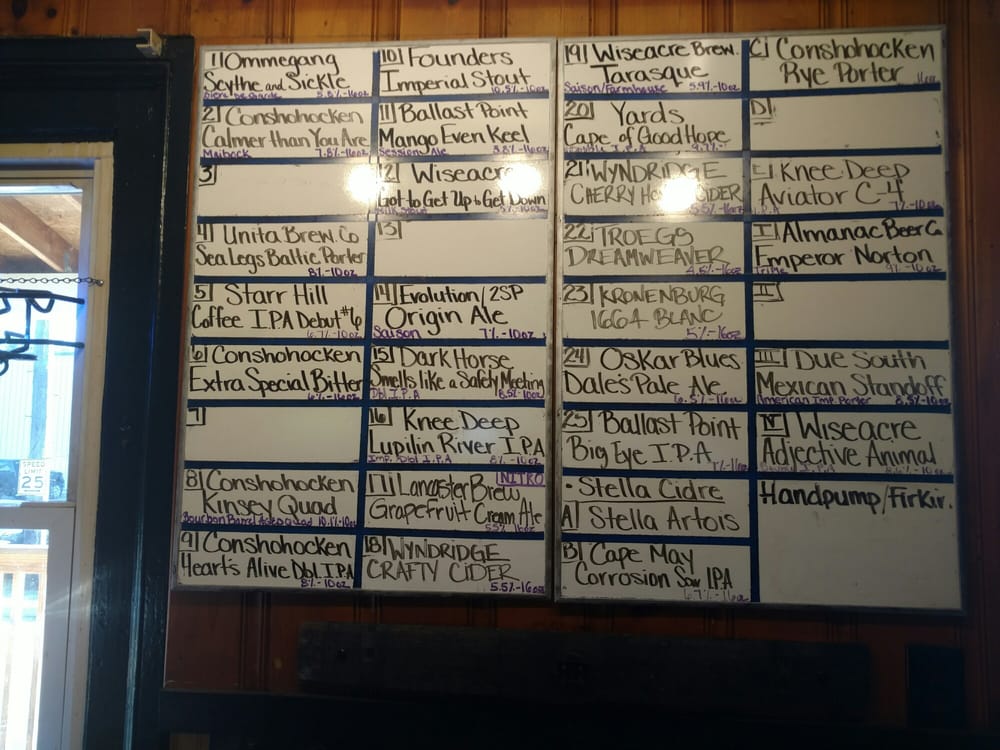 1 Ommegang
Scythe and Sickle
5.8%-16oz
2 Conshohocken
Calmer than You Are
Maibock 7.8%-16oz
3
4 Unita Brew. Co
Sea Legs Baltic Porter
8%-10oz
5 Starr Hill
Coffee I.P.A Debut #6
6.7%-10oz
6 Conshohocken
Extra Special Bitter
6%-16oz
7
8 Conshohocken
Kinsey Quad
9 Conshohocken
Hearts Alive Dbl I.P.A
8%-10oz
10 Founders
Imperial Stout
10.5%-10oz
11 Ballast Point
Mango Even Keel
Session Ale 3.8%-16oz
12 Wiseacre
Got to Get Up to Get Down
13
14 Evolution/2SP
Origin Ale
Saison 7%-10oz
15 Dark Horse
Smells like a Safety Meeting
Dbl I.P.A 8.5%-10oz
16 Knee Deep
Lupilin River I.P.A
Imp. Dbl I.P.A 8%-10oz
17 Lancaster Brew NITRO
Grapefruit Cream Ale
18 WYNDRIDGE
CRAFTY CIDER
5.5%-16oz
19 Wiseacre Brew.
Tarasque
Saison/Farmhouse 5.9%-10oz
20 Yards
Cape of Good Hope
21 WYNDRIDGE
CHERRY CIDER
5.5%-16oz
22 TROEGS
DREAMWEAVER
4.5%-16oz
23 KRONENBURG
1664 BLANC
5%-16oz
24 Oskar Blues
Dale's Pale Ale
6.5%-16oz
25 Ballast Point
Big Eye I.P.A
7%-16oz
• Stella Cidre
A Stella Artois
B Cape May
Corrosion Sour IPA
6.7%-16oz
C Conshohocken
Rye Porter
D
E Knee Deep
Aviator C-4
I Almanac Beer Co
Emperor Norton
II
III Due South
Mexican Standoff
American Imp. Porter 8.5%-10oz
IV Wiseacre
Adjective Animal
Handpump/Firkin
SPEED
LIMIT
25